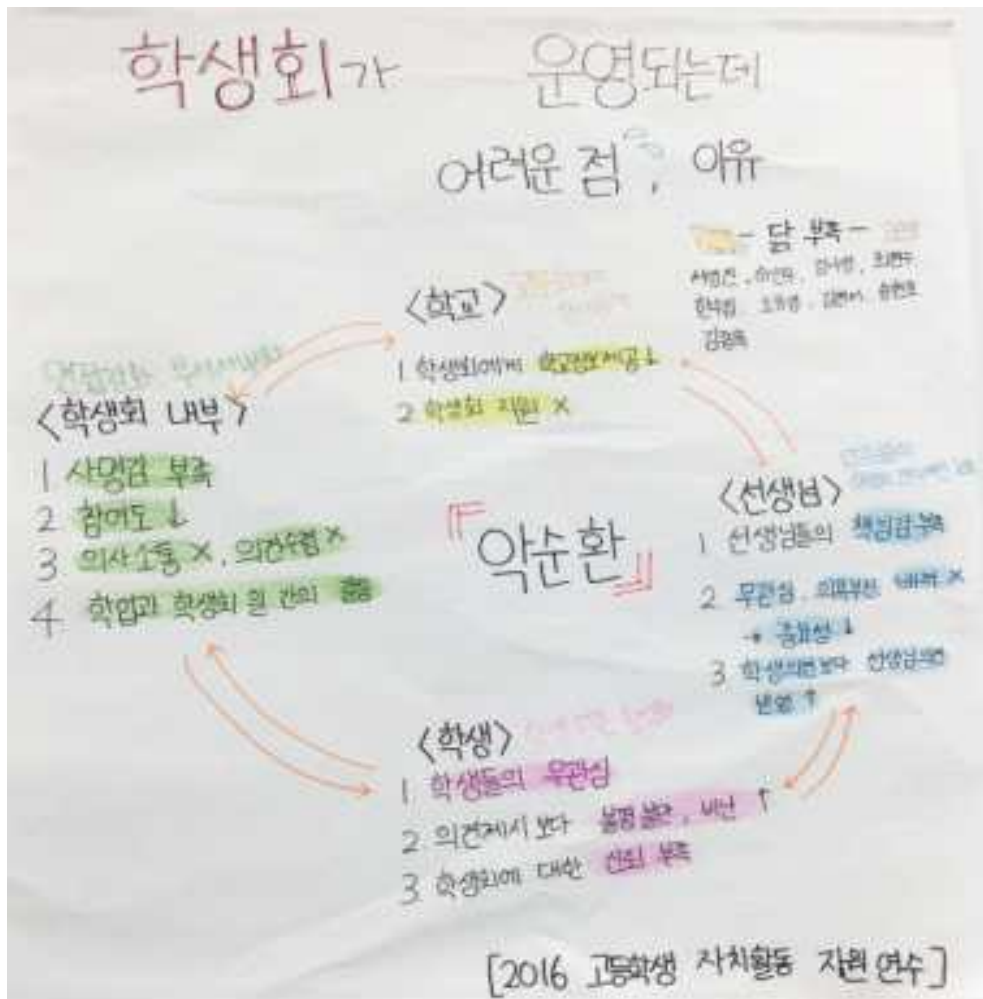 학생회가 운영되는데
어려운 점, 이유
- 담 부족 -
김종욱
<학교>
1 학생회에게 학교정보제공↓
2 학생회 지원 X
<학생회 내부>
1 사명감 부족
2 참여도 ↓
3 의사소통 X, 의견수렴 X
4 학업과 학생회 일 간의 충돌
『악순환』
<선생님>
1 선생님들의 책임감 부족
2 무관심, X
→ 중요성 ↓
3 학생의견보다 선생님의견
반영 ↑
<학생>
1 학생들의 무관심
2 의견제시 보다 불평불만, 비난 ↑
3 학생회에 대한 신뢰 부족
[2016 고등학생 자치활동 지원 연수]